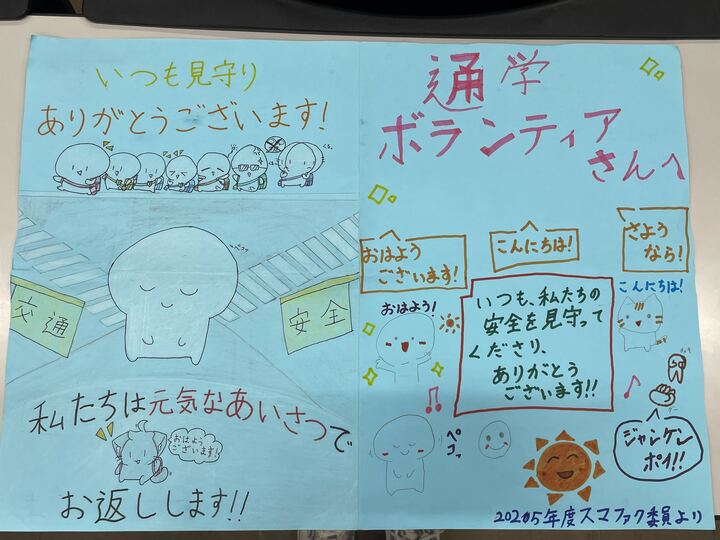 いつも見守り
ありがとうございます!
ペコッ
交通
安全
私たちは元気なあいさつで
おはよう
ございます!
お返しします!!
通学
ボランティア
さんへ
おはよう
ございます!
こんにちは!
さよう
なら!
おはよう!
いつも、私たちの
安全を見守って
くださり、
ありがとう
ございます!!
こんにちは!
ペコッ
ジャンケン
ポイ!!
2025年度スマファク委員より